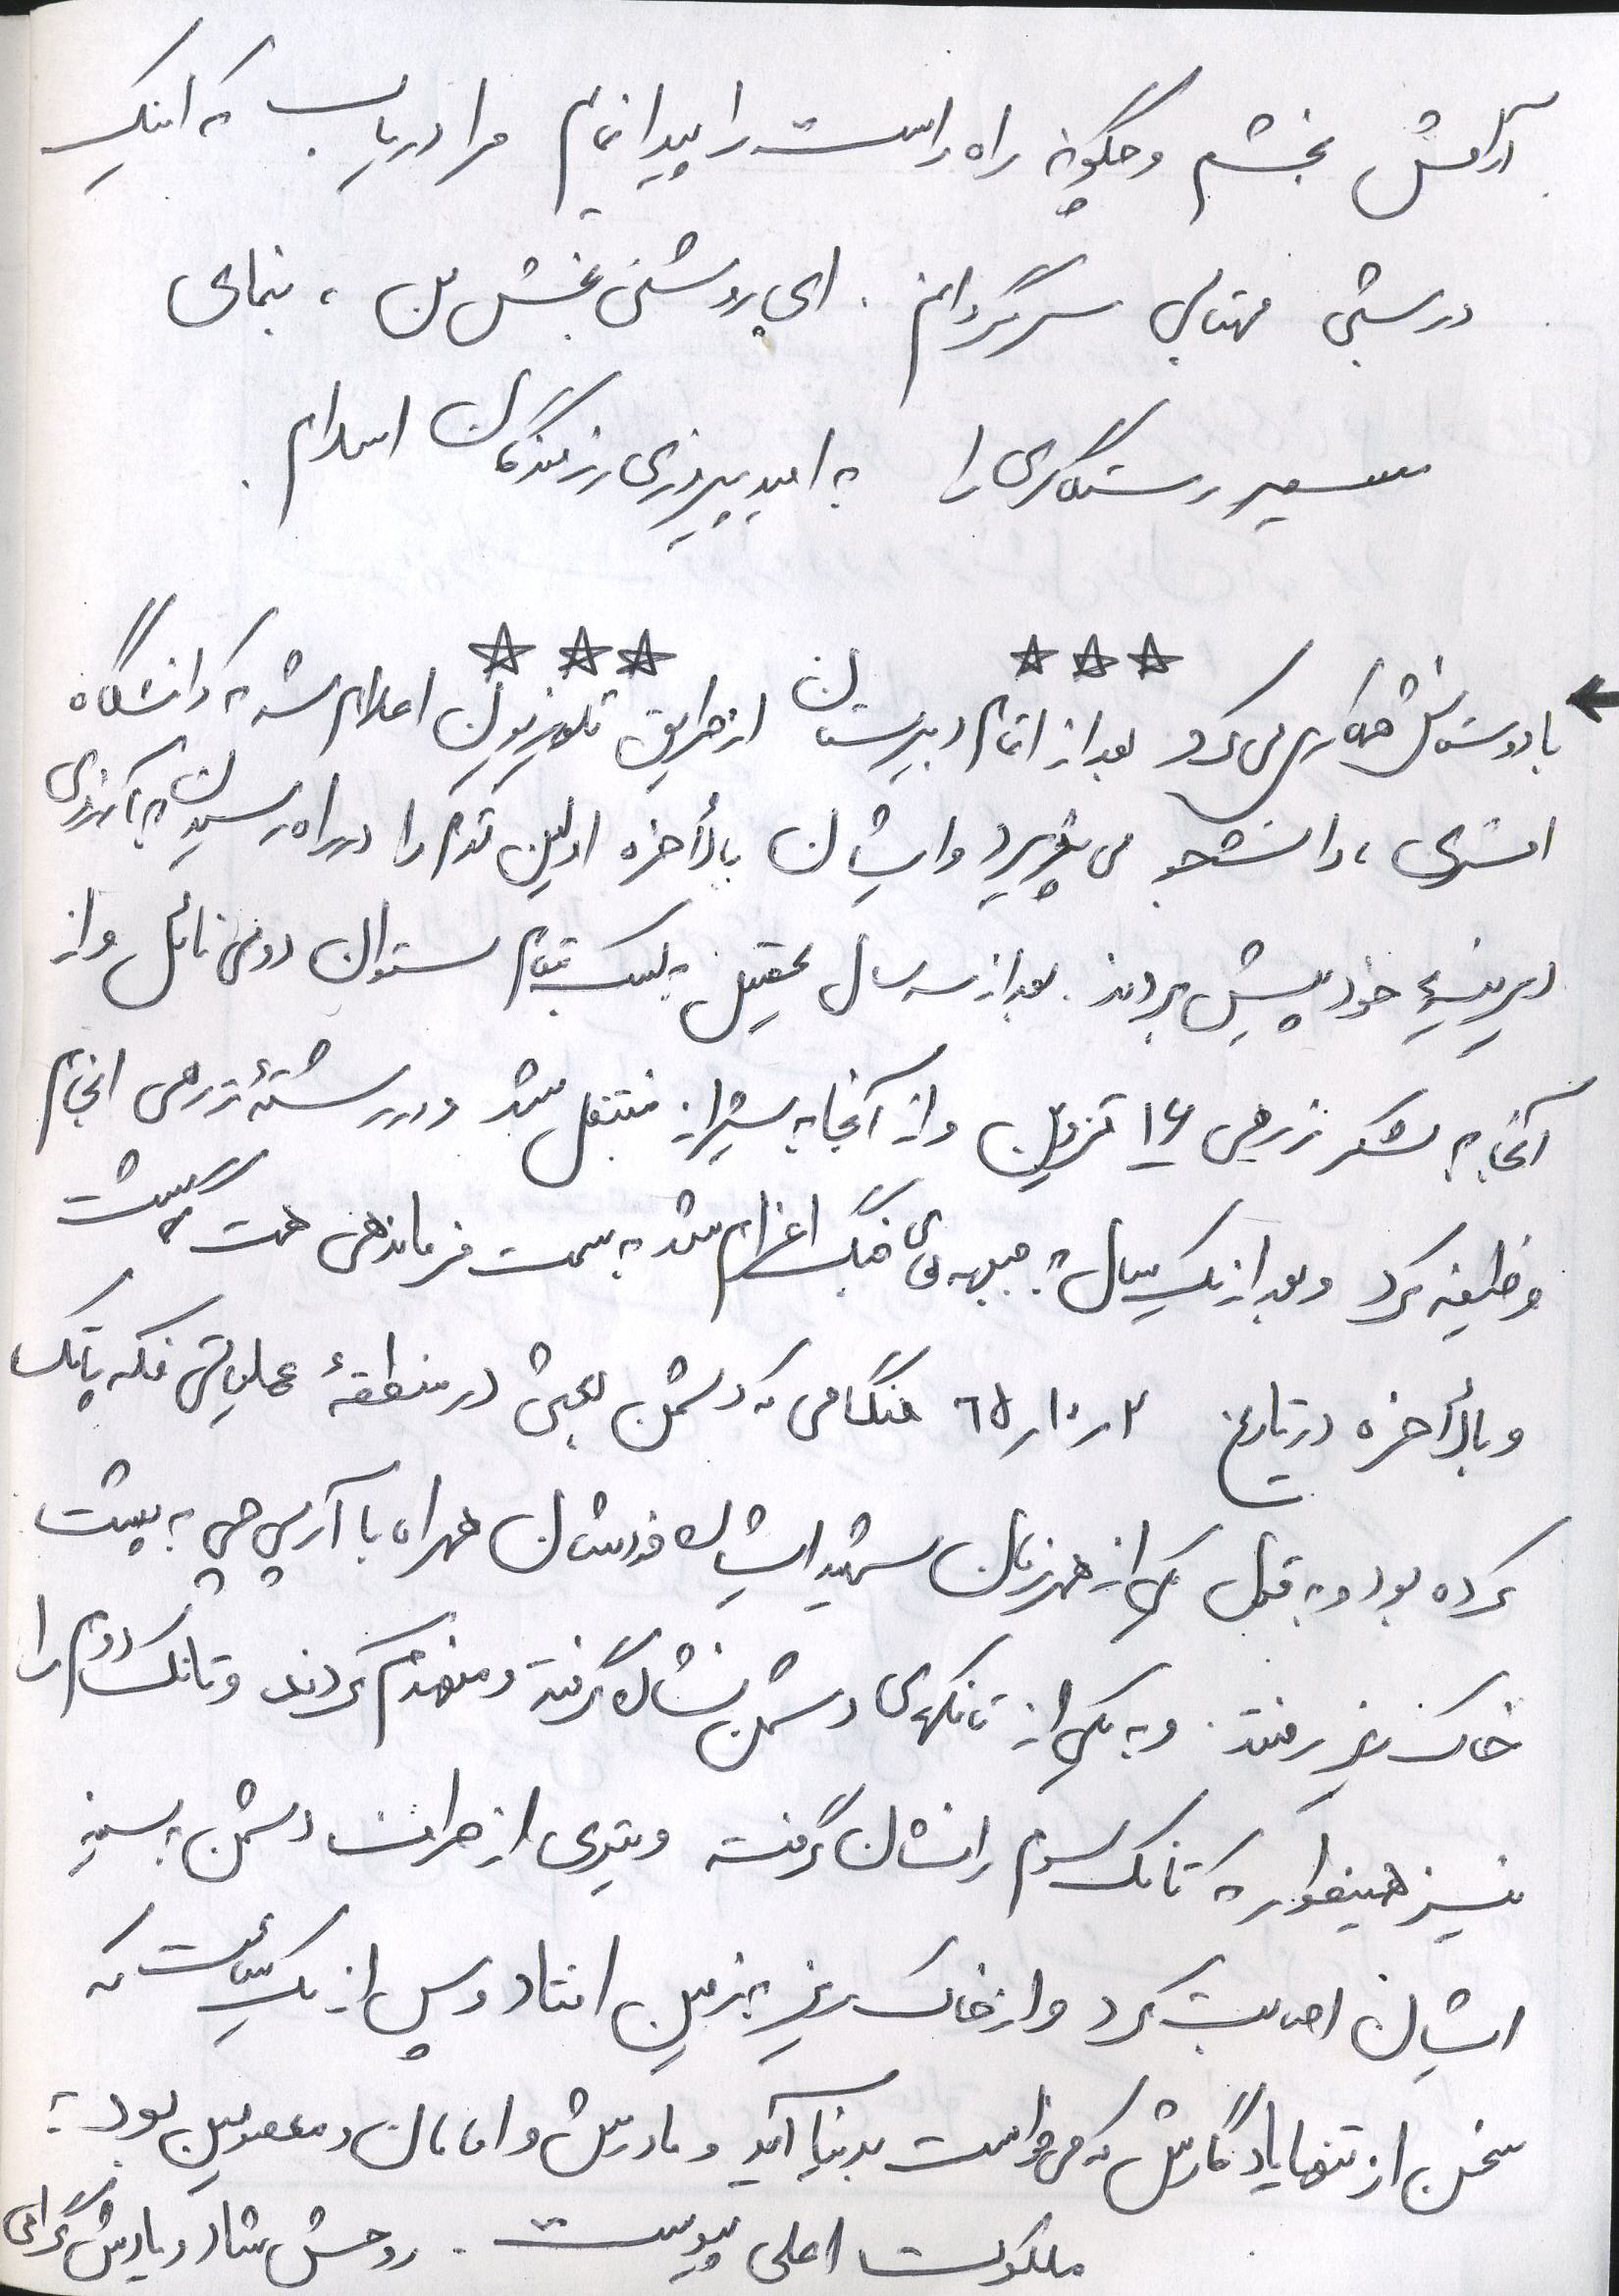 آرامش بخشم و چگونه راه راست را پیدا نمایم مرا دریاب که اینک
در شبی مهتابی سرگردانم . ای روشنی بخش من ، بنمای
مسیر رستگاری را به امید پیروزی رزمندگان اسلام .
☆☆☆ ☆☆☆
← با دوستانش همکاری می کرد بعد از اتمام دبیرستان از طریق تلویزیون اعلام شد که دانشگاه
افسری ، دانشجو می پذیرد و ایشان بالأخره اولین قدم را در راه رسیدن به آرزوی
دیرینهٔ خود پیش بردند . بعد از سه سال تحصیل به کسب مقام ستوان دومی نائل و از
آنجا به لشکر زرهی ۱۶ قزوین و از آنجا به شیراز منتقل شد و در رشتهٔ زرهی انجام
وظیفه کرد و بعد از یک سال به جبهه های جنگ اعزام شد به سمت فرماندهی همت گماشت
و بالأخره در تاریخ ۲ر۱۰ر۶۵ هنگامی که دشمن بعثی در منطقهٔ عملیاتی فکه پاتک
کرده بود و به قول یکی از همرزمان شهید ایشان خودشان همراه با آرپی جی به پشت
خاک ریز رفتند . و به یکی از تانکهای دشمن نشان گرفته و منهدم کردند و تانک دوم را
نیز همینطور که تانک سوم را نشان گرفته و تیری از طرف دشمن به سینهٔ
ایشان اصابت کرد و از خاک ریز به زمین افتاد و پس از یک ساعت که
سخن از تنها یادگارش که می خواست بدنیا آید و مادرش و امامان و معصومین بود به
ملکوت اعلی پیوست . روحش شاد و یادش گرامی